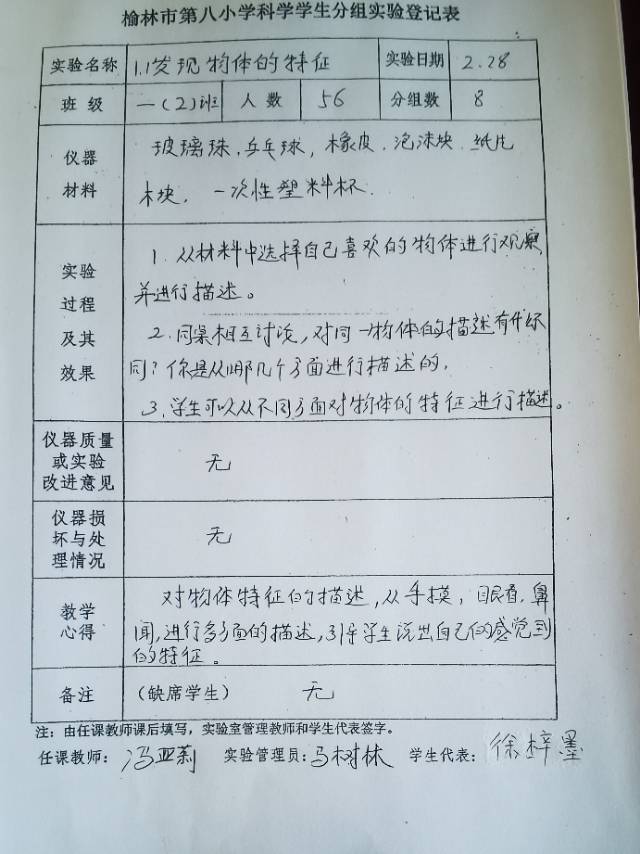 榆林市第八小学科学学生分组实验登记表
实验名称 1.1发现物体的特征 实验日期 2.28
班级 一(2)班 人数 56 分组数 8
仪器
材料
玻璃珠、乒乓球, 橡皮、泡沫块、纸片
木块、一次性塑料杯.
实验
过程
及其
效果
1. 从材料中选择自己喜欢的物体进行观察
并进行描述。
2. 同桌相互讨论, 对同一物体的描述有什么不
同? 你是从哪几个方面进行描述的.
3. 学生可以从不同方面对物体的特征进行描述。
仪器质量
或实验
改进意见
无
仪器损
坏与处
理情况
无
教学
心得
对物体特征的描述, 从手摸, 眼看, 鼻
闻, 进行多方面的描述, 引导学生说出自己的感觉到
的特征。
备注 (缺席学生) 无
注: 由任课教师课后填写, 实验室管理教师和学生代表签字。
任课教师: 冯亚莉 实验管理员: 马树林 学生代表: 徐梓墨